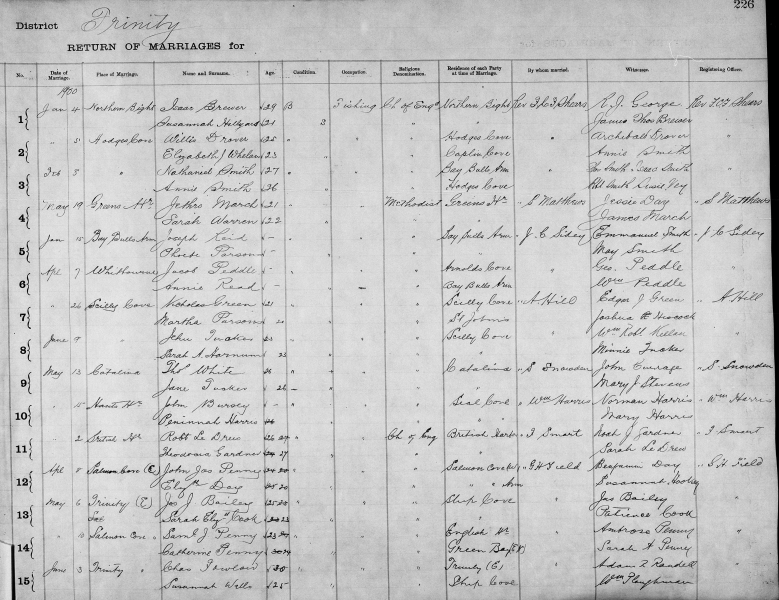 226
District Trinity
RETURN OF MARRIAGES for
No. Date of Marriage. Place of Marriage. Name and Surname. Age. Condition. Occupation. Religious Denomination. Residence of each Party at time of Marriage. By whom married. Witnesses. Registering Officer.
1900
1 Jan 4 Northern Bight Isaac Brewer 29 B Fishing Ch of Eng Northern Bight Rev R. J. George Rev
Susannah 21 S " James Thos Brewer
2 " 5 Hodges Cove Willis Drover 25 " " " Hodges Cove " Archibald Drover "
Elizabeth J Whelan 23 Caplin Cove Annie Smith
3 Feb 3 " Nathaniel Smith 27 " " " Bay Bulls Arm " Isaac Smith "
Annie Smith 26 Hodges Cove
4 May 19 Greens Hr Jethro March 21 " " Methodist Greens Hr " S Matthews Jessie Day " S Matthews
Sarah Warren 22 " James March
5 Jan 15 Bay Bulls Arm Joseph Reid - " " " Bay Bulls Arm " J. C. Sidey Emmanuel Smith " J C Sidey
Phoebe Parsons - " May Smith
6 Apl 7 Whitbourne Jacob Peddle - " " " Arnolds Cove " Geo. Peddle "
Annie Read - Bay Bulls Arm Wm Peddle
7 " 26 Scilly Cove Nicholas Green 21 " " " Scilly Cove " A Hill Edgar J Green " A Hill
Martha Parsons St Johns Joshua
8 June 9 " John Tucker " " " Scilly Cove " Wm Robt "
Sarah A " Minnie Tucker
9 May 13 Catalina Thos White " " Catalina " S Snowden John Courage " S Snowden
Jane Tucker 26 " Mary J Stevens
10 " 15 Hants Hr John Bursey - " " " Seal Cove " Wm Harris Norman Harris " Wm Harris
Peninnah Harris " Mary Harris
11 " 2 Robt Le Drew " " Ch of Eng British Harbr " I Smart Noah J Gardner " I Smart
Theodosia Gardner 27 " Sarah Le Drew
12 Apl 8 Salmon Cove (E) John Jas Penny " " " Salmon Cove " G H Field Benjamin Day " G H Field
Elizth Day 20 " Arm Susannah
13 May 6 Trinity (E) Jas J Bailey " " " Ship Cove " Jas Bailey "
Sarah Elizth Cook 23 " Patience Cook
14 " 10 Salmon Cove " Saml J Penny 23 " " " English Hr " Ambrose Penny "
Catherine Penny Green Bay Sarah A Penny
15 June 3 Trinity " Chas 30 " " " Trinity (E) " Adam Z Randell "
Susannah Wells 25 Ship Cove Wm